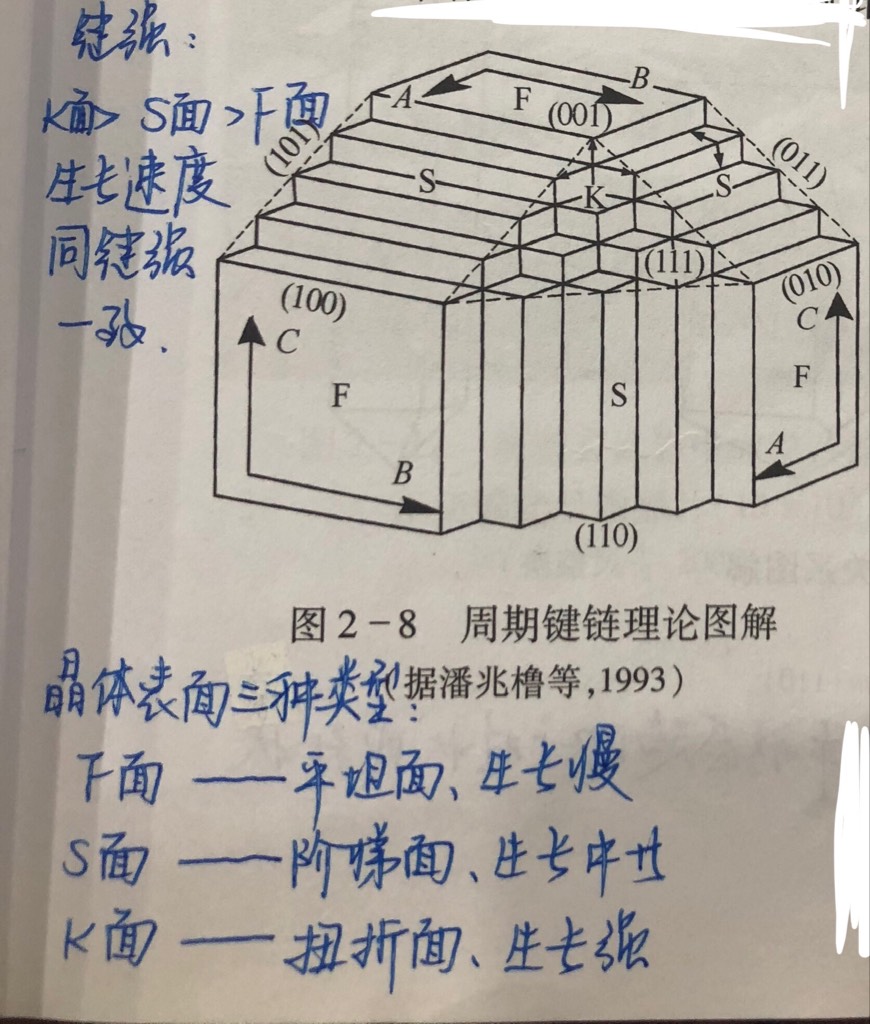 键强：
K面> S面 >F面
生长速度
同键强
一致.
A
F
B
(001)
(101)
S
K
S
(011)
(111)
(100)
(010)
C
C
F
S
F
B
A
(110)
图2-8 周期键链理论图解
(据潘兆橹等,1993)
晶体表面三种类型：
F面 —— 平坦面、生长慢
S面 —— 阶梯面、生长中性
K面 —— 扭折面、生长强